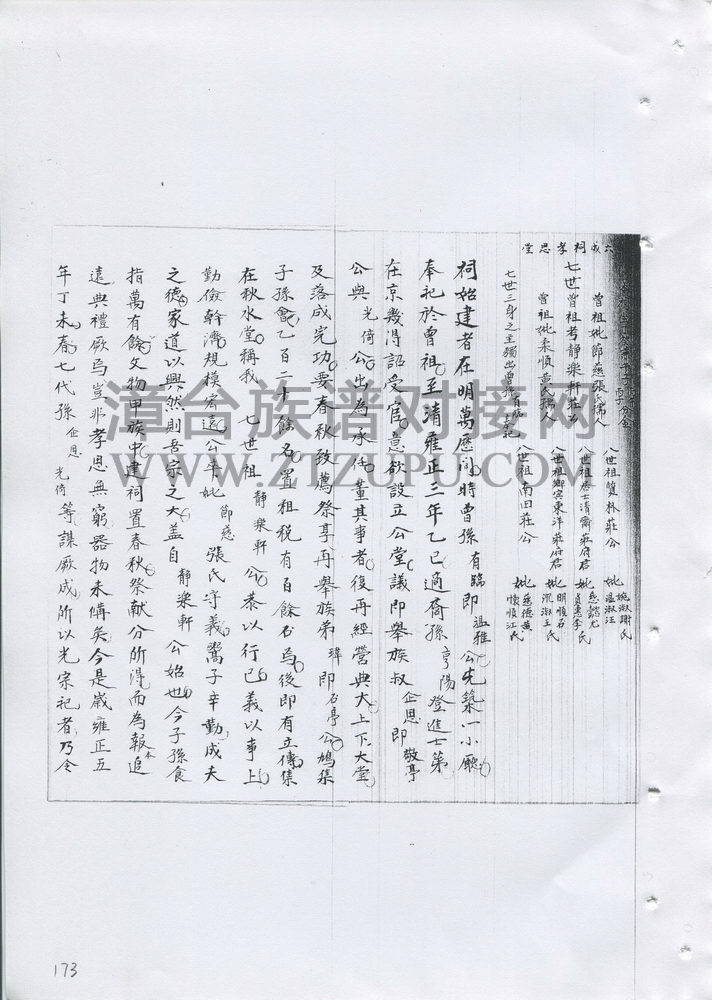 六成祠孝思堂
曾祖妣節慈張氏孺人
七世曾祖考靜樂軒莊公
曾祖妣柔順黃氏孺人
七世三身之主獨出曾孫
八世祖質林莊公 妣 婉淑謝氏 温淑汪氏
八世祖居士清齋莊府君 妣 慈懿尤氏 貞惠李氏
八世祖鄉賓東洋莊府君 妣 明順石氏 淑王氏
八世祖南田莊公 妣 慈德黃氏 懷順江氏
祠始建者在明萬曆間時曾孫有臨即温雅公先築一小廳
奉祀於曾祖至清雍正三年乙巳適裔孫亨陽登進士第
在京幾得詔受官意欲設立公堂議即舉族叔企思即敬亭
公與光倚公出為承任董其事者後再經營典大上下大堂
及落成完功要春秋致薦祭享再舉族弟瑋即石亭公鳩集
子孫會乙百二十餘名置租稅有百餘石為後即有立傳集
在秋水堂稱我七世祖靜樂軒公恭以行已義以事上
勤儉幹濟規模宏遠公平妣節慈張氏守義鬻子辛勤成夫
之德家道以興然則吾宗之大蓋自靜樂軒公始也今子孫食
指萬有餘文物甲族中建祠置春秋祭献分所得而為報本追
遠典禮厥爲豈非孝思無窮器物未備矣今是歲雍正五
年丁未春七代孫企思光倚等謀厥成所以光宗祀者乃令
漳台族谱对接网
WWW.ZTZUPU.COM
173